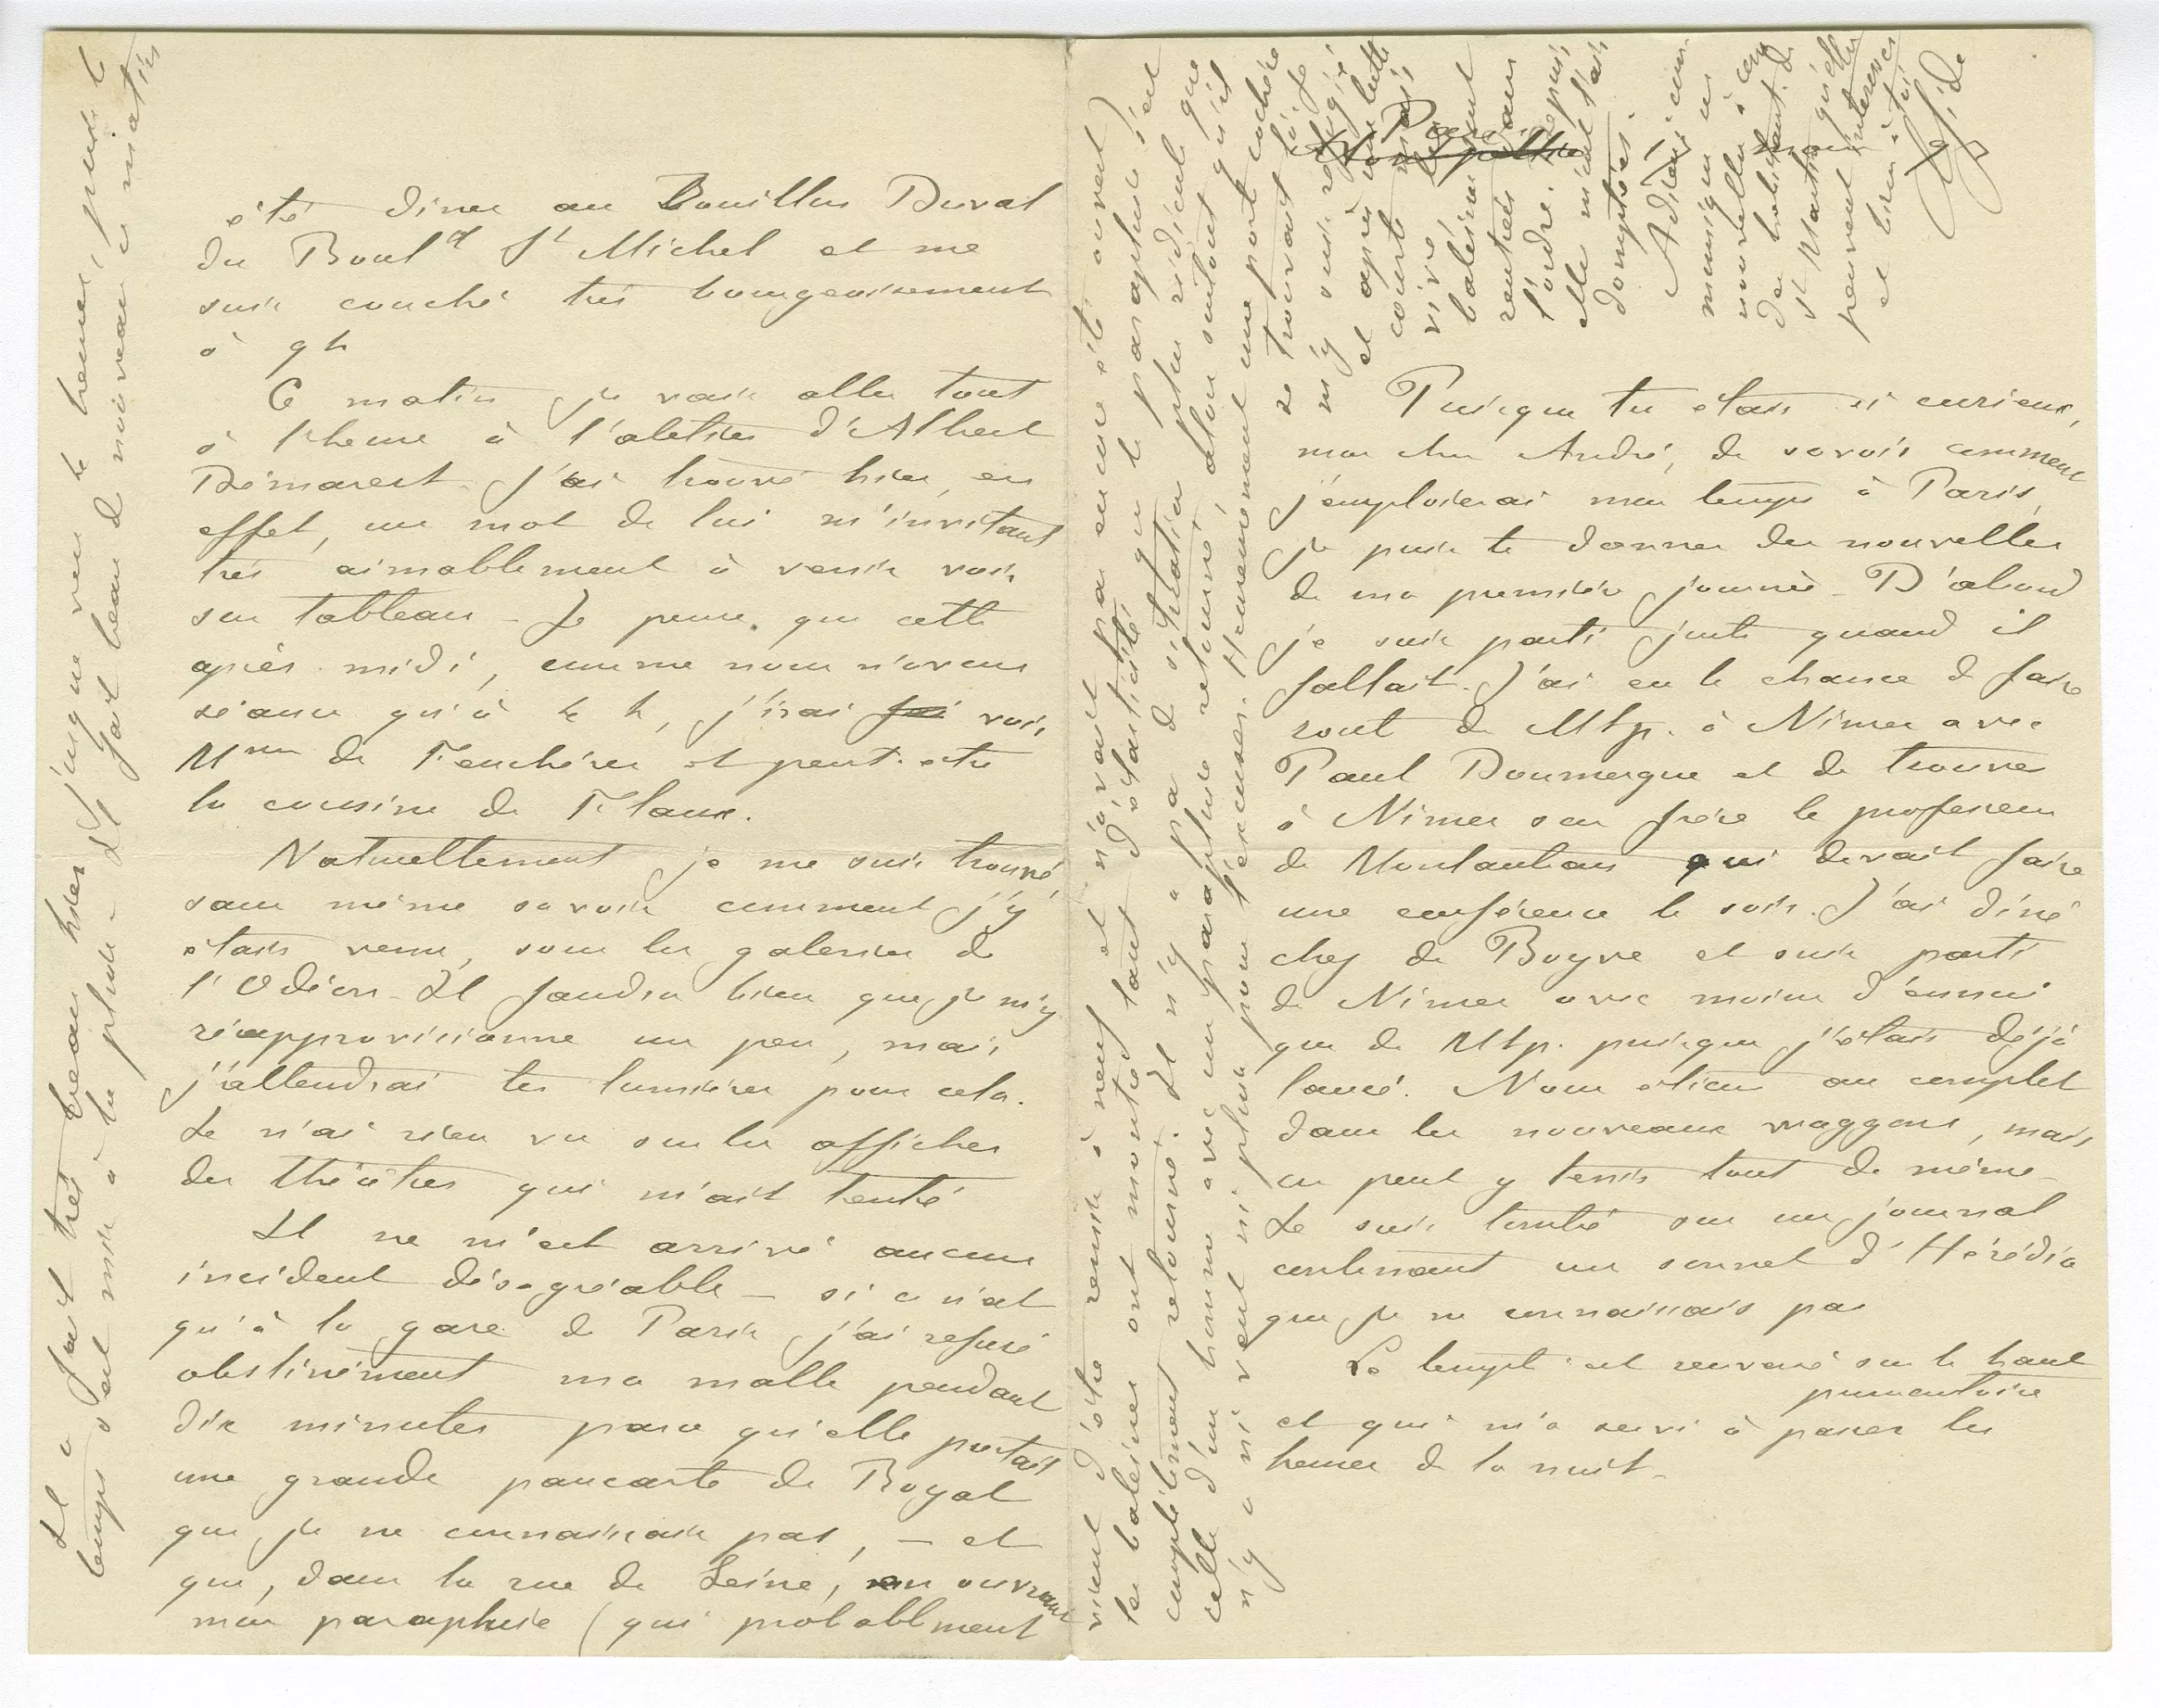 Paris
Montpellier
Puisque tu étais si curieux,
mon cher André, de savoir comment
j'emploierai mon temps à Paris,
je puis te donner des nouvelles
de ma première journée. D'abord
je suis parti juste quand il
fallait. J'ai eu la chance de faire
route de Mtp. à Nîmes avec
Paul Doumergue et de trouver
à Nîmes son frère le professeur
de Montauban qui devait faire
une conférence le soir. J'ai dîné
chez de Boyve et suis parti
de Nîmes avec moins d'ennui
que de Mtp. puisque j'étais déjà
lancé. Nous étions au complet
dans les nouveaux waggons, mais
on peut y tenir tout de même
Je suis tombé sur un journal
contenant un sonnet d'Hérédia
que je ne connaissais pas
Le temple est renversé sur le haut
promontoire
et qui m'a servi à passer les
heures de la nuit.
été dîner au Bouillon Duval
du Bould St Michel et me
suis couché très bourgeoisement
à 9 h
Ce matin je vais aller tout
à l'heure à l'atelier d'Albert
Démarest. J'ai trouvé hier, en
effet, un mot de lui m'invitant
très aimablement à venir voir
son tableau – Je pense que cette
après midi, comme nous n'avons
séance qu'à 4 h, j'irai voir
Mme de Feuchères et peut-être
la cousine de Flaux.
Naturellement je me suis trouvé,
sans même savoir comment j'y
étais venu, sous les galeries de
l'Odéon. Il faudra bien que je m'y
réapprovisionne un peu, mais
j'attendrai tes lumières pour cela.
Je n'ai rien vu sur les affiches
des théâtres qui m'ait tenté
Il ne m'est arrivé aucun
incident désagréable – si ce n'est
qu'à la gare de Paris j'ai refusé
obstinément ma malle pendant
dix minutes parce qu'elle portait
une grande pancarte de Royat
que je ne connaissais pas, – et
que, dans la rue de Seine, en ouvrant
mon parapluie (qui probablement
vient d'être remis à neuf et n'avait pas encore été ouvert)
les baleines ont montré tant d'élasticité que le parapluie s'est
complètement retourné. Il n'y a pas de situation plus ridicule que
celle d'un homme avec un parapluie retourné, alors surtout qu'il
n'y a ni vent ni pluie pour l'excuser. Heureusement une porte cochère
se trouvant là je
m'y suis réfugié
et après une lutte
courte mais
vive les
baleines sont
rentrées dans
l'ordre. Depuis
elles m'ont l'air
domptées.
Adieu, com-
munique ces
nouvelles à ceux
des habitants de
St Martin qu'elles
peuvent intéresser
et bien à toi
Ch Gide
Il a fait très beau hier jusque vers 4 heures, puis le
temps s'est mis à la pluie – Il fait beau de nouveau ce matin